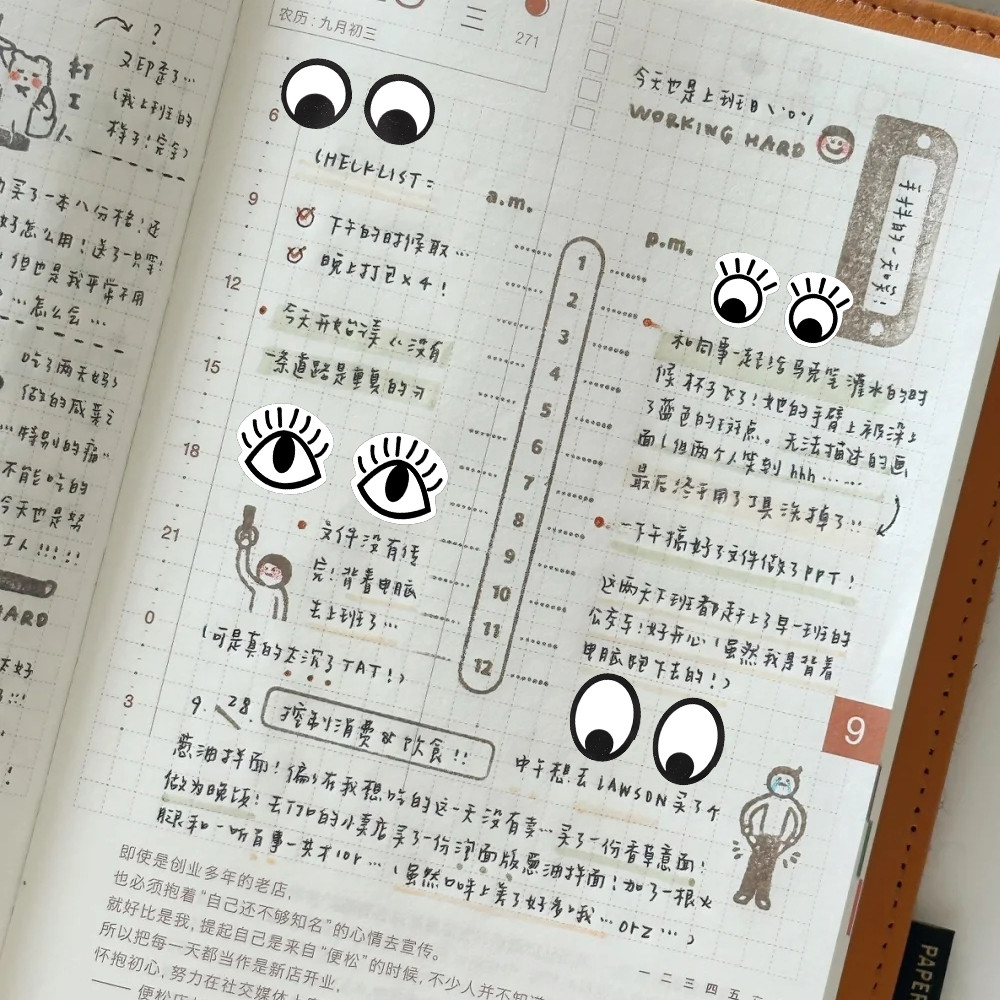 ?
又印歪了…
(我上班的
样子！完全)
打
工
人
买了一本八份格！还
好怎么用！送了一只笔！
但也是我平常不用
…怎么会…
吃了两天妈妈
做的咸菜之
特别的痛
不能吃的
今天也是努
工人!!!!!
HARD
三
农历：九月初三
271
6
9
12
15
18
21
0
3
CHECKLIST=
下午的时候取…
晚上打包×4！
今天开始读《没有
一条道路是重复的》
文件没有传
完！背着电脑
去上班了…
(可是真的太沉了TAT！)
a.m.
p.m.
1
2
3
4
5
6
7
8
9
10
11
12
今天也是上班日\·o·/
WORKING HARD
手抖的一天哈哈！
和同事一起给马克笔灌水的时
候杯子飞了！她的手臂上被染上
了蓝色的斑点。无法描述的画
面！但两个人笑到hhh……
最后终于用了工具洗掉了…
一下午搞好了文件做了PPT！
这两天下班都赶上了早一班的
公交车！好开心(虽然我是背着
电脑跑下去的！)
9
9.28.
控制消费&饮食!!
中午想去LAWSON买了个
葱油拌面！偏偏在我想吃的这一天没有卖…买了一份香草意面！
做为晚饭！去门口的小卖店买了一份泡面版葱油拌面！加了一根火
腿和一听百事一共才10r…
(虽然口味上差了好多哦…orz…)
即使是创业多年的老店，
也必须抱着“自己还不够知名”的心情去宣传。
就好比是我，提起自己是来自“便松”的时候，不少人并不知道
所以把每一天都当作是新店开业，
怀抱初心，努力在社交媒体上
—— 便松店
一 二 三 四 五
PAPE